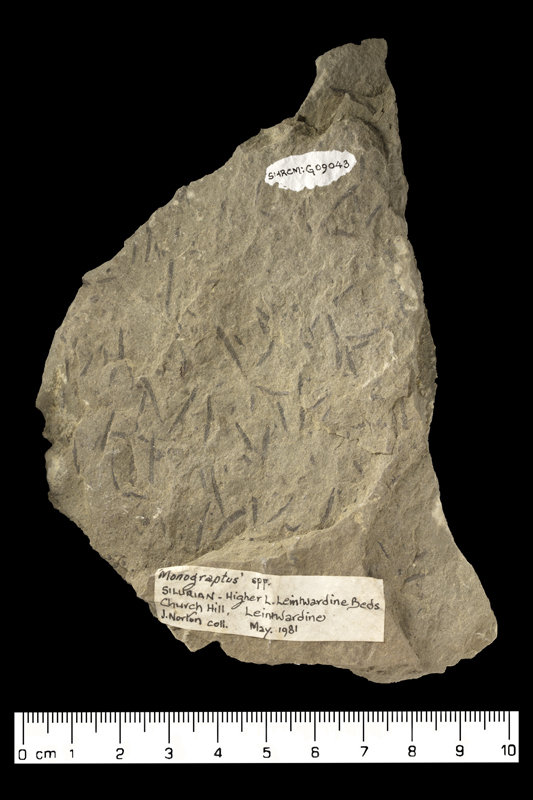 SHRCM:G09043
Monograptus' spp.
SILURIAN - Higher L. Leintwardine Beds
Church Hill, Leintwardine
J. Norton coll. May. 1981
0 cm 1 2 3 4 5 6 7 8 9 10